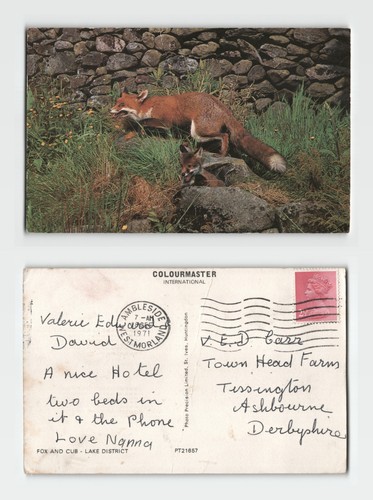 COLOURMASTER
INTERNATIONAL
AMBLESIDE
1971
WESTMORLAND
Valerie Edward
David
A nice Hotel
two beds in
it & the Phone
Love Nanna
FOX AND CUB - LAKE DISTRICT
Photo Precision Limited, St. Ives, Huntingdon
V. E. D Carr
Town Head Farm
Tissington
Ashbourne
Derbyshire
PT21657